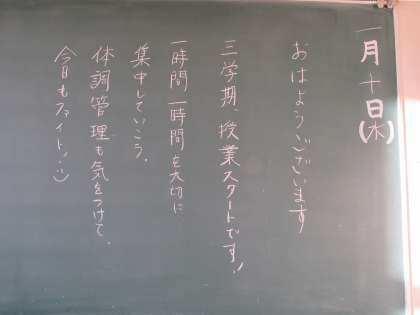 一月十日(木)
おはようございます
三学期、授業スタートです!
一時間一時間を大切に
集中していこう。
体調管理も気をつけて、
今日もファイト!:)